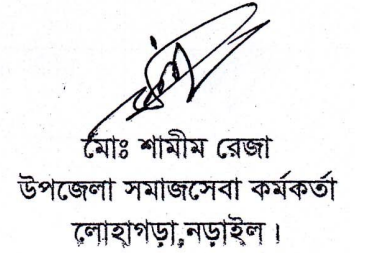 মোঃ শামীম রেজা
উপজেলা সমাজসেবা কর্মকর্তা
লোহাগড়া,নড়াইল।